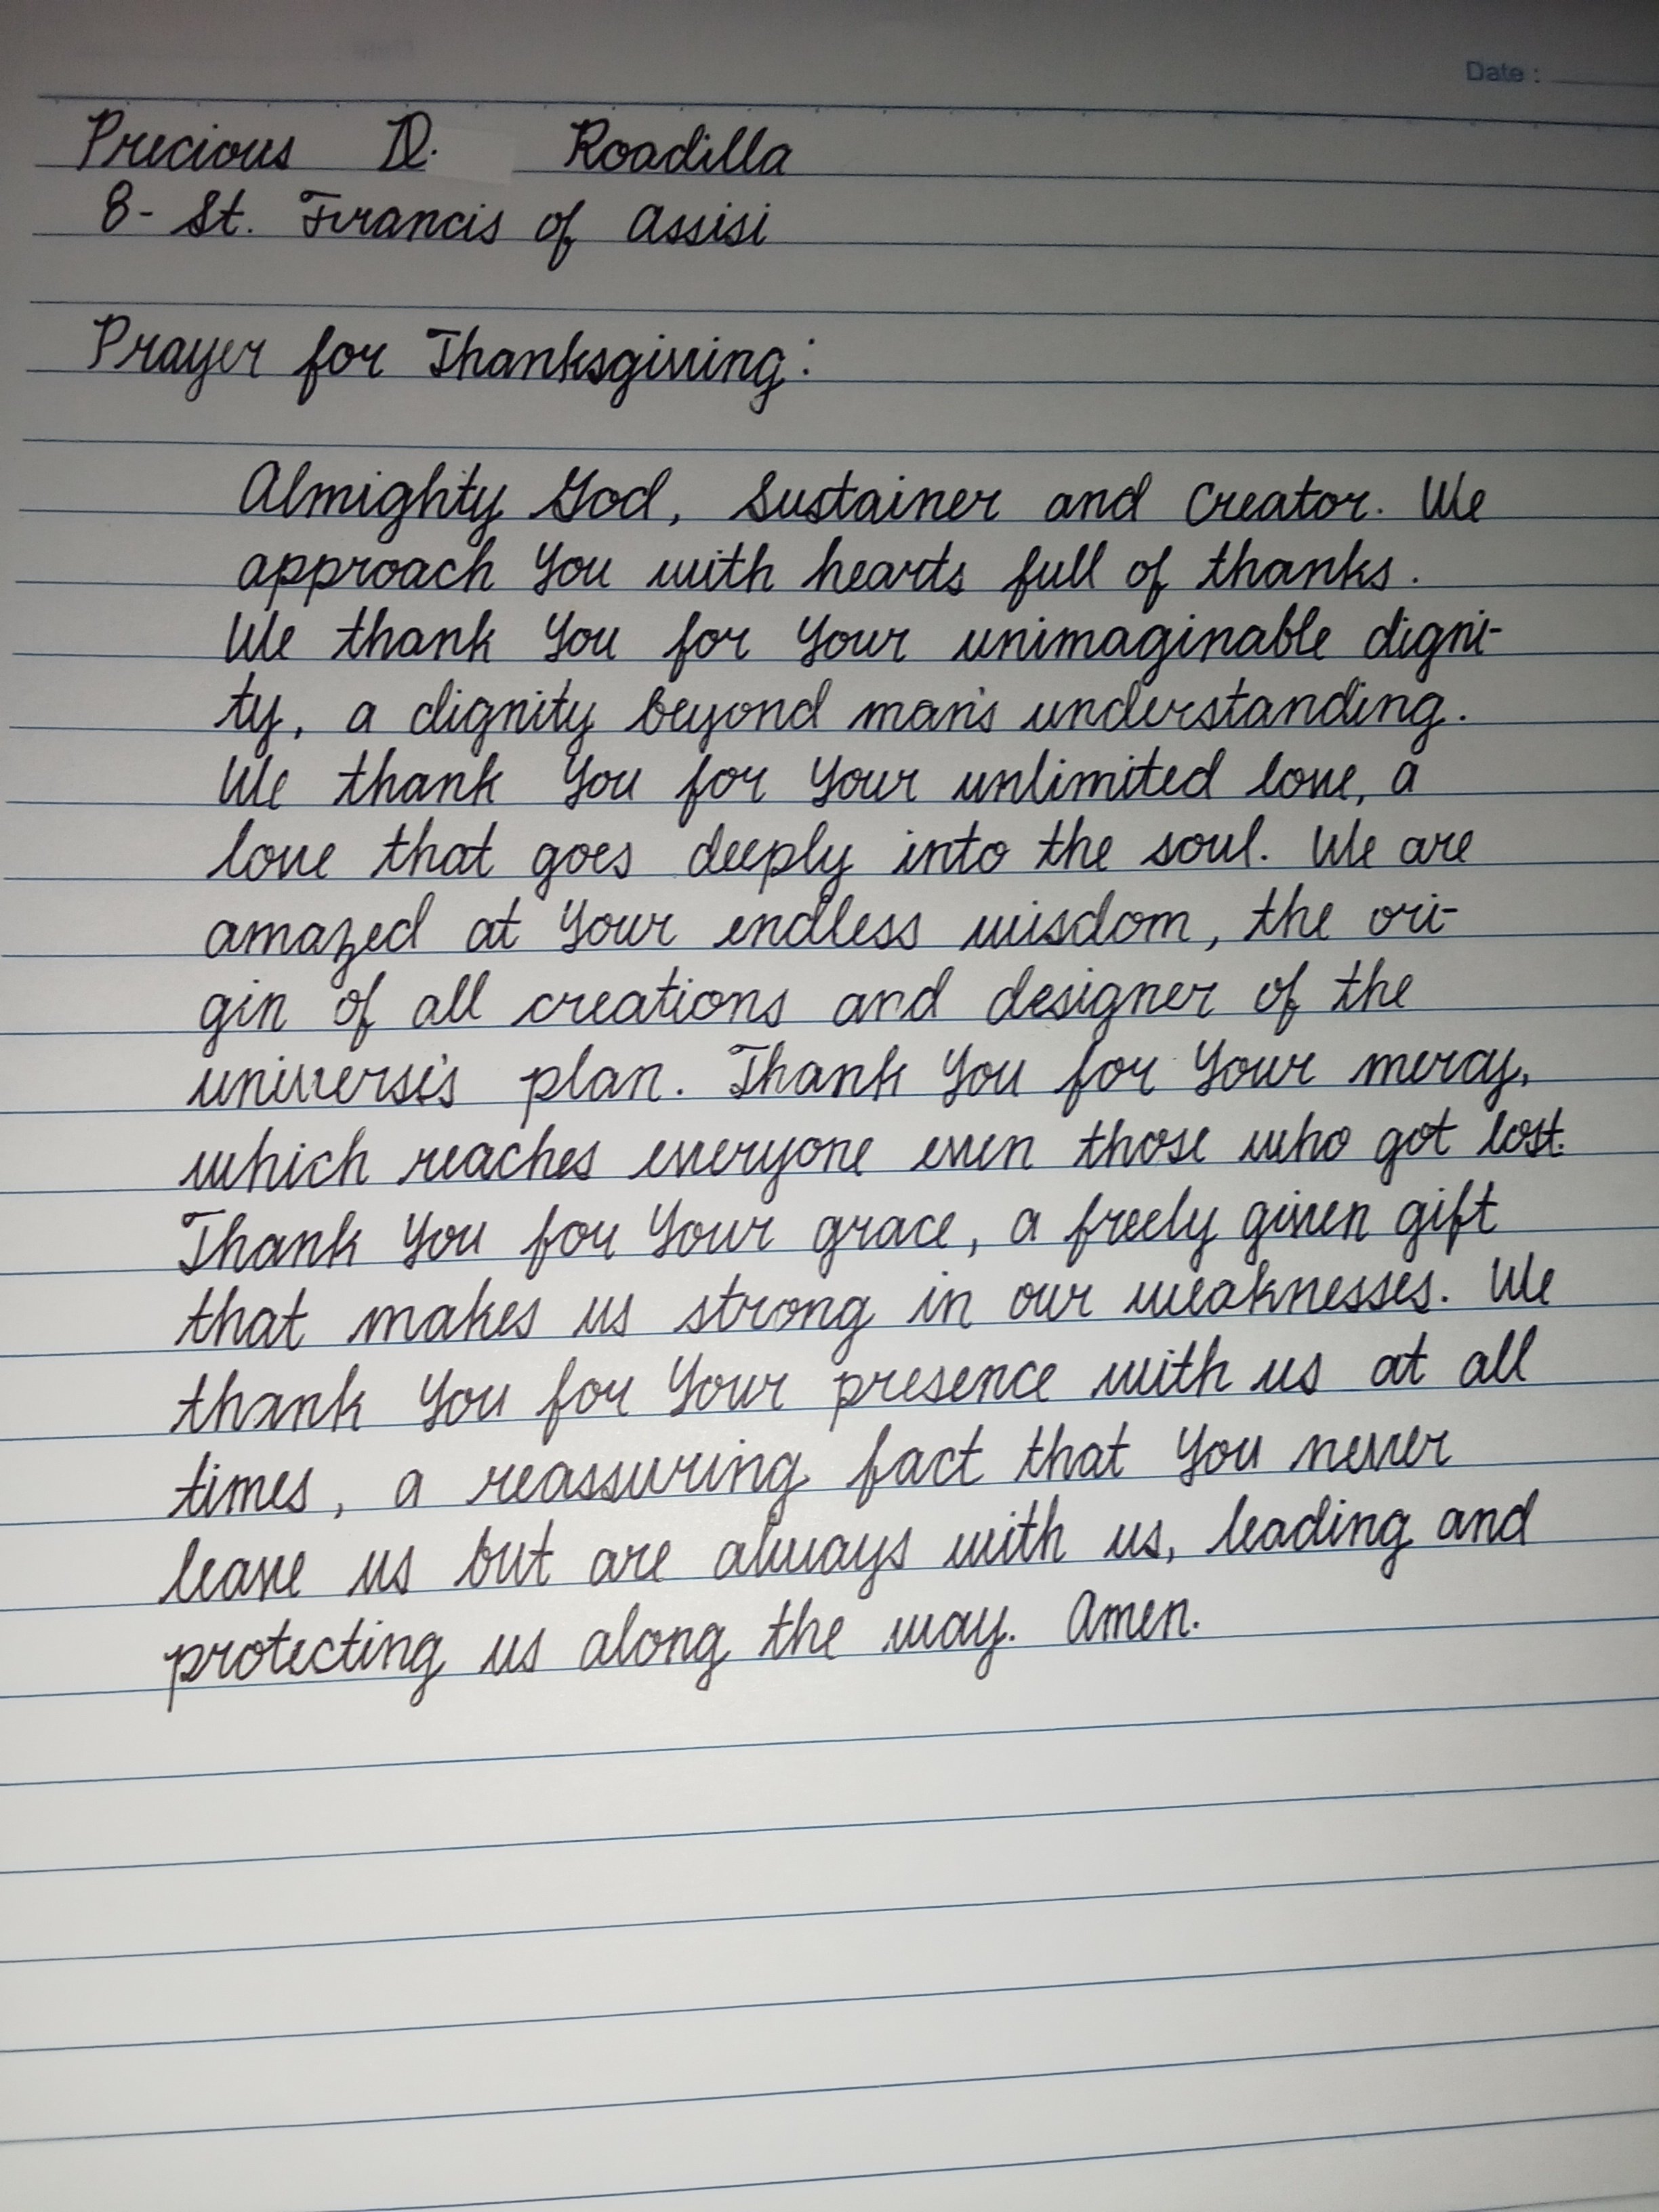 Date :
Precious D. Roadilla
8- St. Francis of Assisi
Prayer for Thanksgiving:
Almighty God, Sustainer and Creator. We
approach You with hearts full of thanks.
We thank You for Your unimaginable digni-
ty, a dignity beyond man's understanding.
We thank You for Your unlimited love, a
love that goes deeply into the soul. We are
amazed at Your endless wisdom, the ori-
gin of all creations and designer of the
universe's plan. Thank You for Your mercy,
which reaches everyone even those who got lost.
Thank You for Your grace, a freely given gift
that makes us strong in our weaknesses. We
thank You for Your presence with us at all
times, a reassuring fact that You never
leave us but are always with us, leading and
protecting us along the way. Amen.